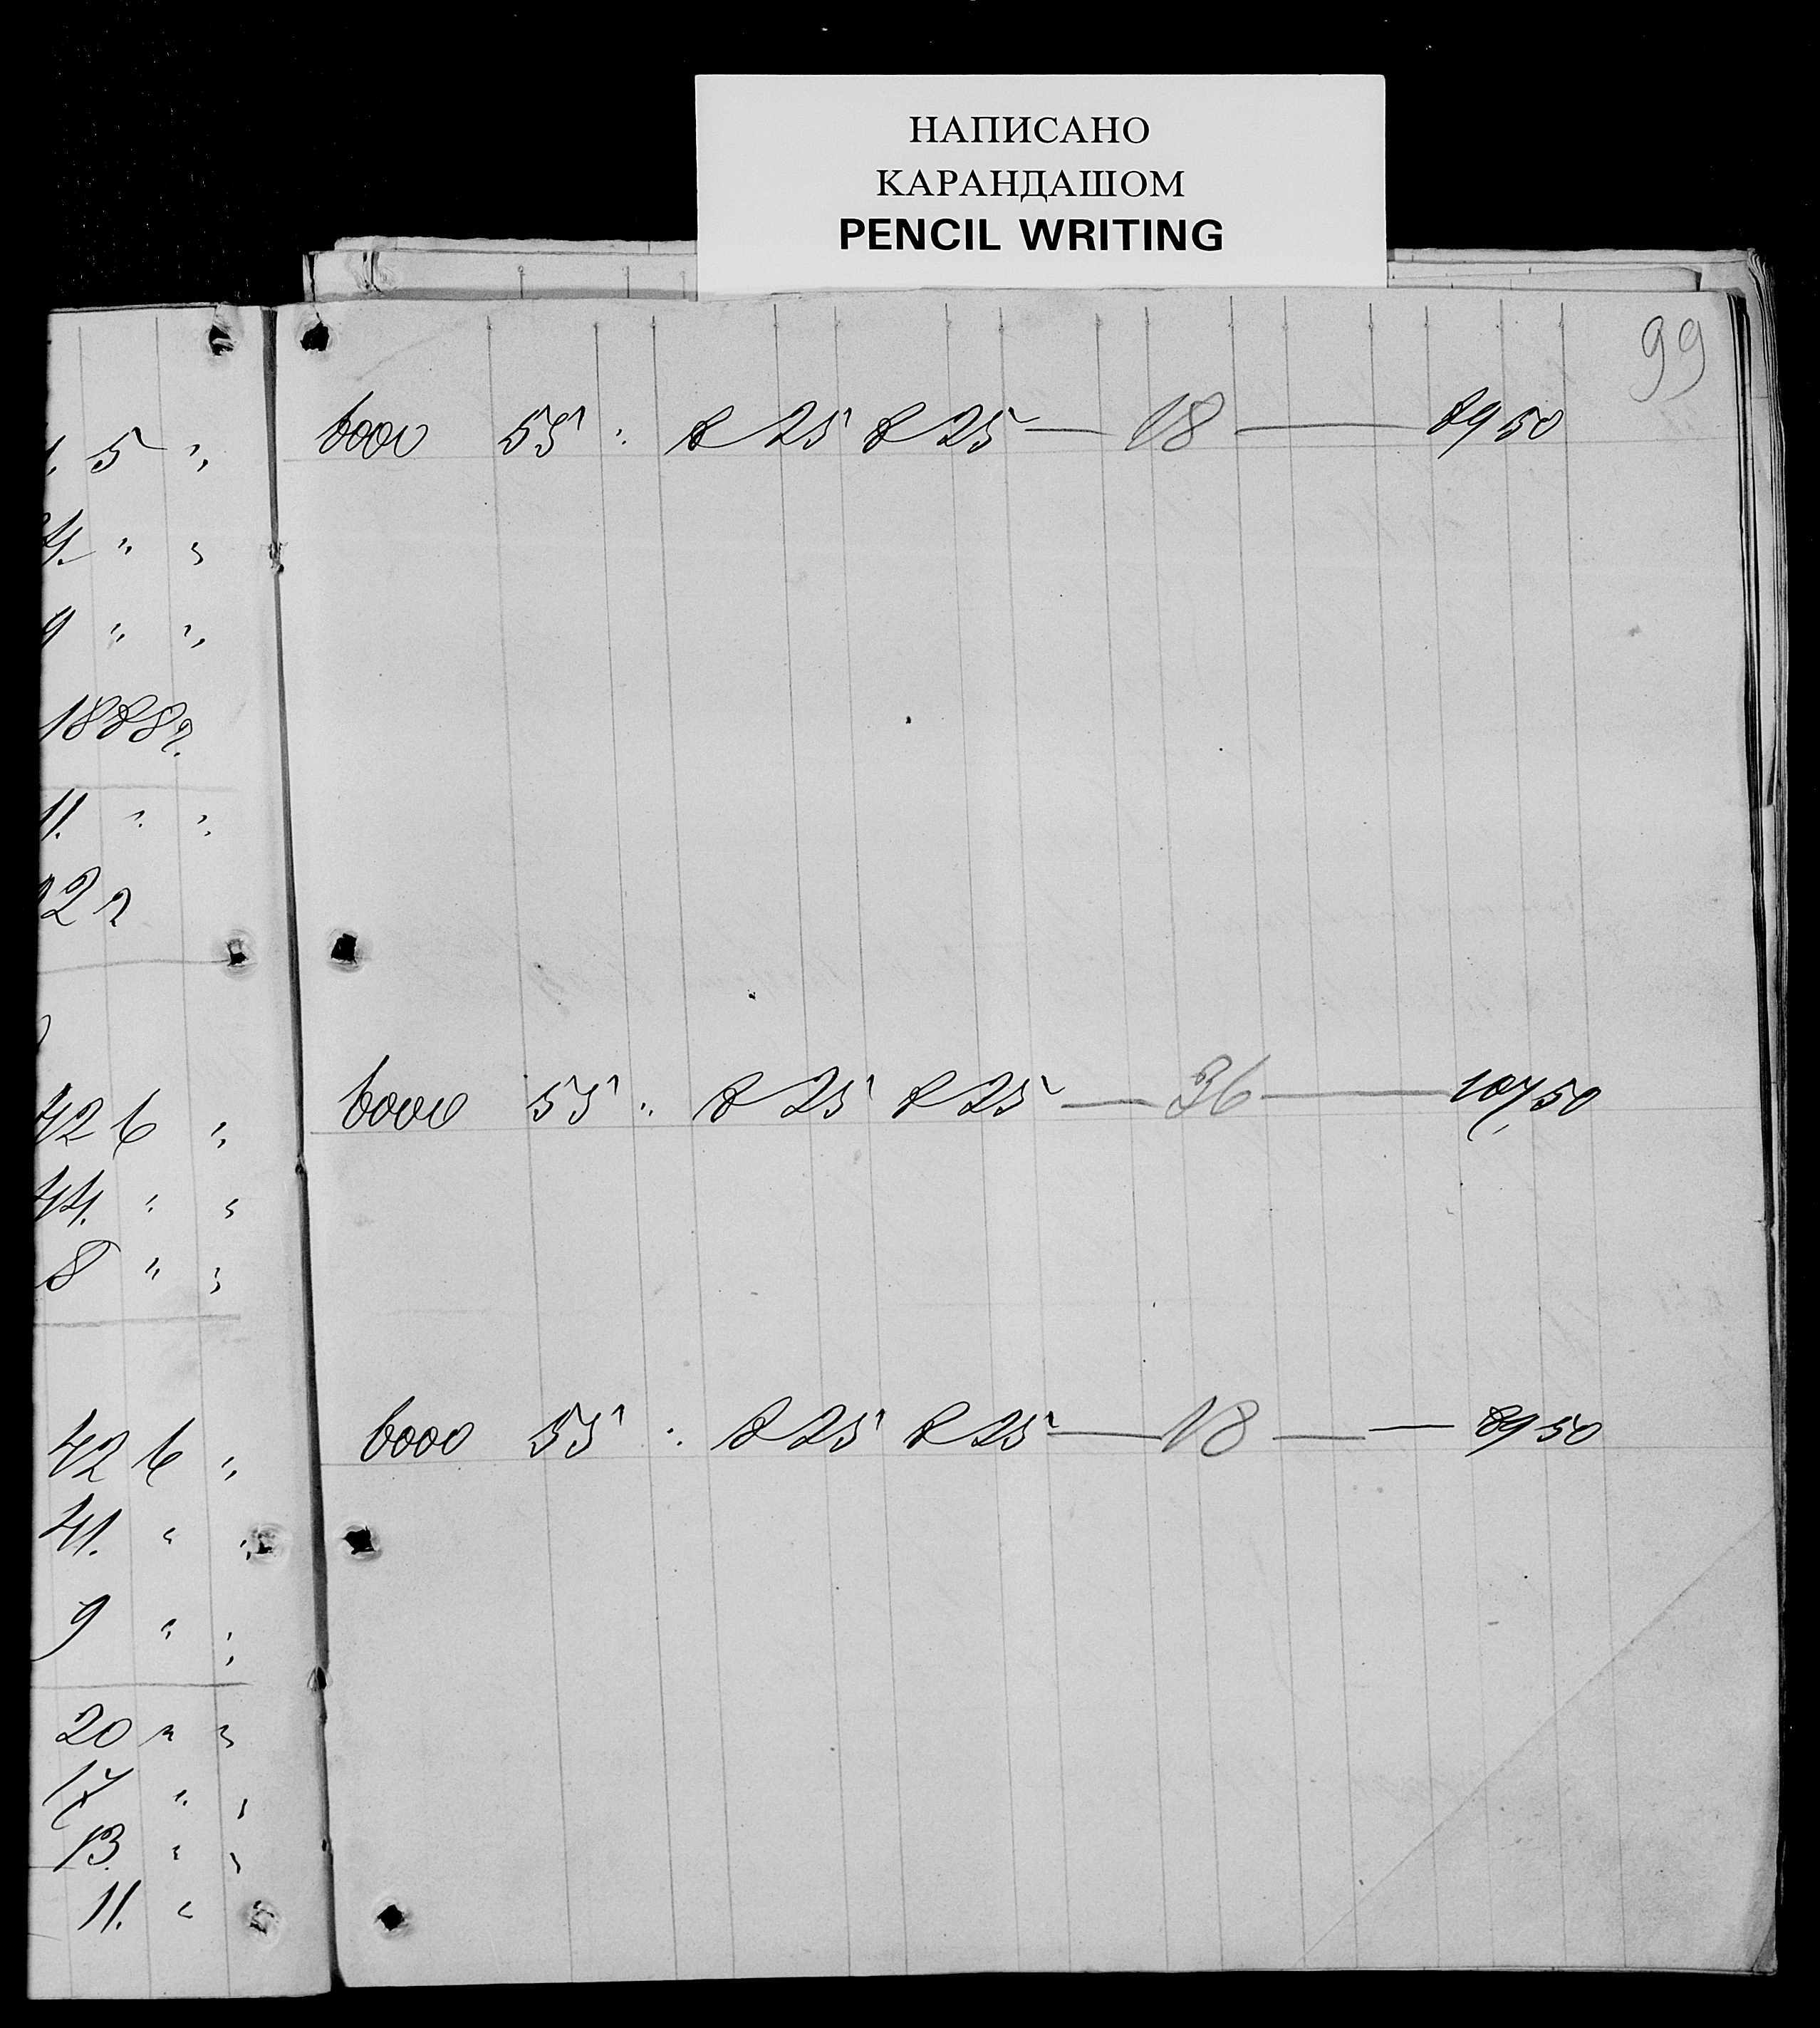 НАПИСАНО
КАРАНДАШОМ
PENCIL WRITING
99
5 „
4. „ „
9 „ „
1888г.
11. „ „
22 г
42 6 „
44. „ „
8 „ „
42 6 „
41. „ „
9 „ „
20 „ „
17 „ „
13. „ „
11. „
6000 55 „ 8 25 8 25 — 18 — 89 50
6000 55 „ 8 25 8 25 — 36 — 107 50
6000 55 „ 8 25 8 25 — 18 — — 89 50